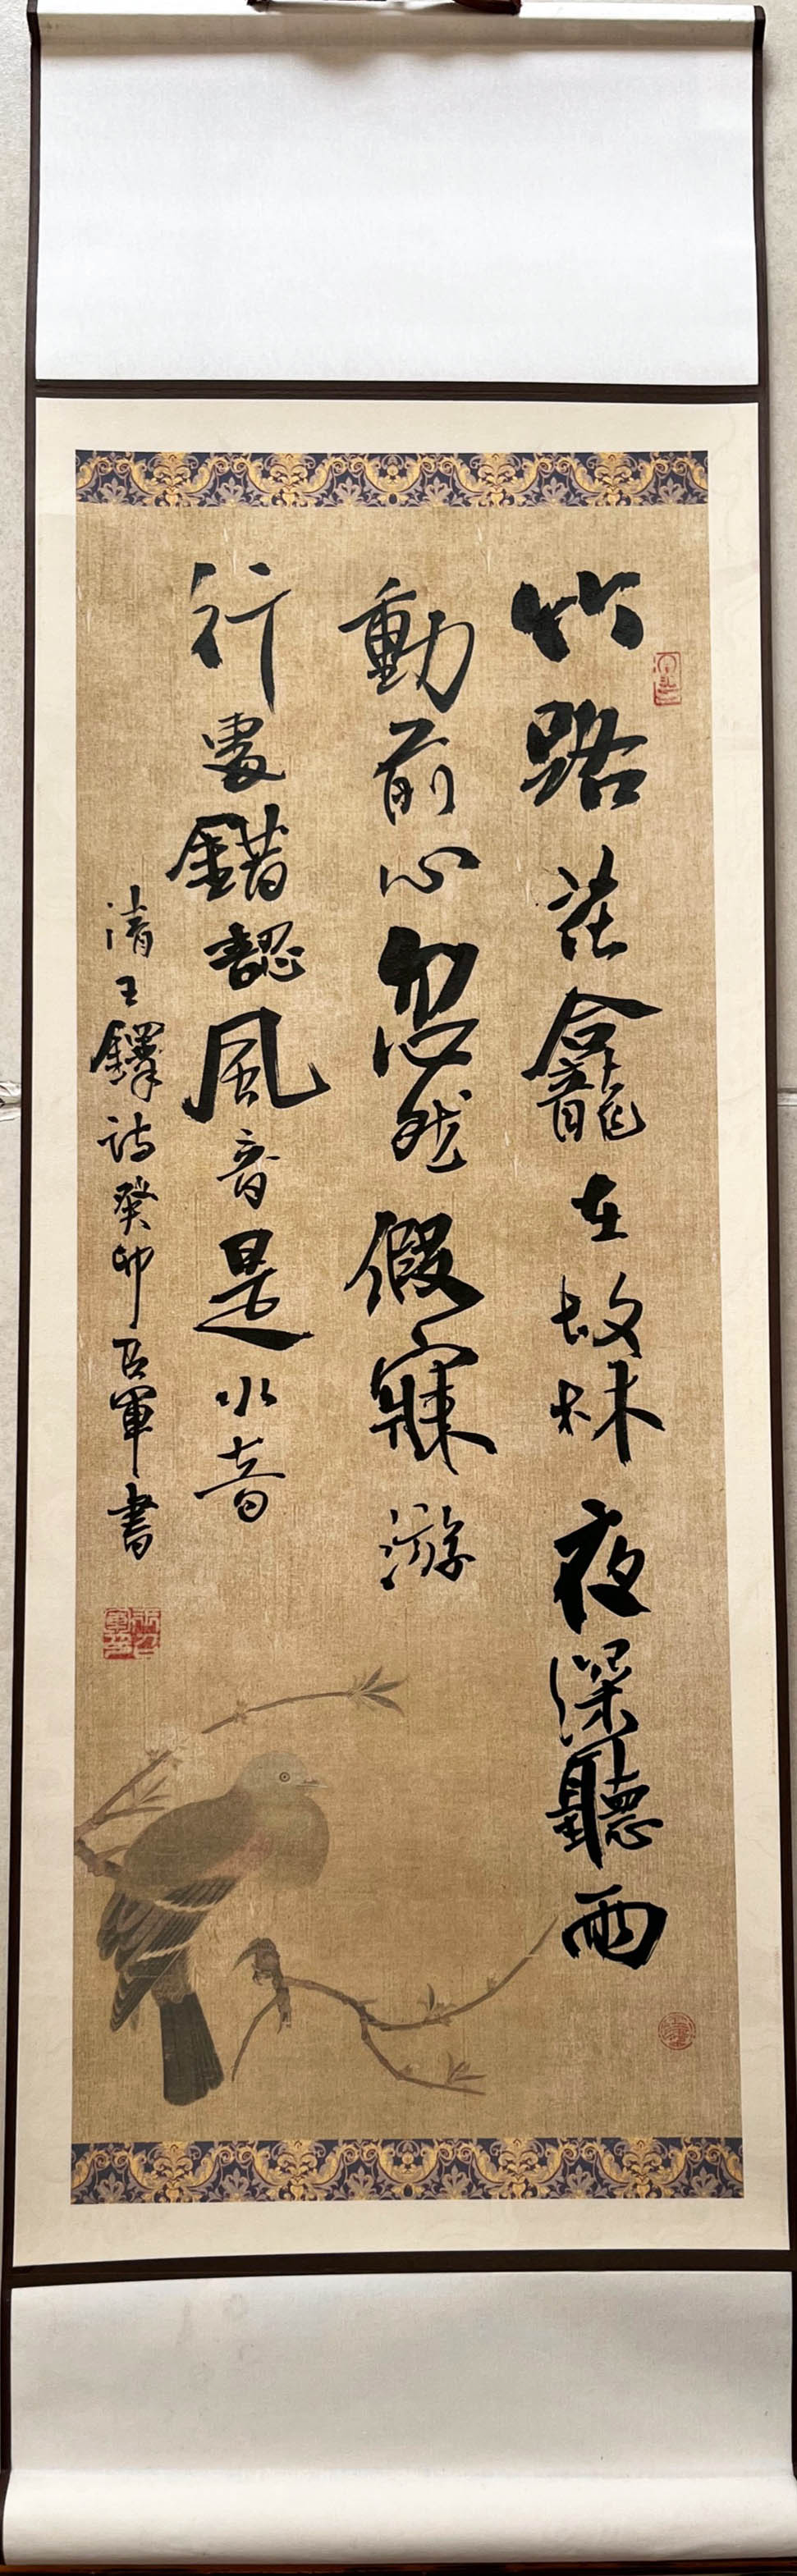 竹路茫龕在故林夜深聽雨
動前心忽然假寐游
行處錯認風音是水音
清王鐸詩癸卯召軍書